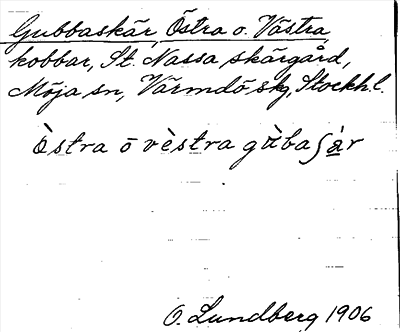 Gubbaskär, Östra o. Västra,
kobbar, St. Nassa skärgård,
Möja sn, Värmdö skg, Stockh. l.
Òstra ō vèstra gùbaʃàr
O. Lundberg 1906